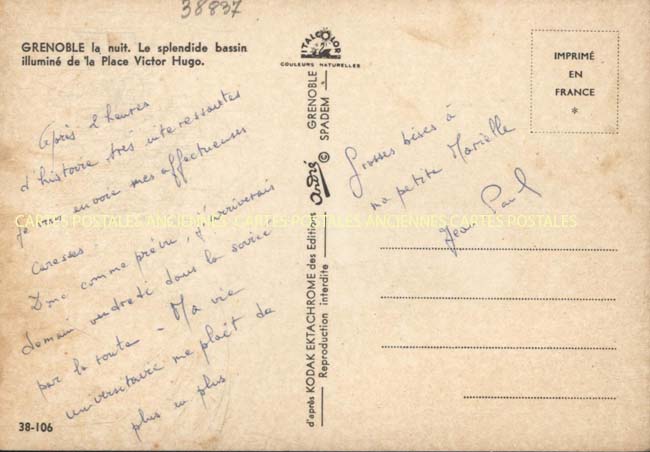 38837
GRENOBLE la nuit. Le splendide bassin
illuminé de la Place Victor Hugo.
Après 2 heures
d'histoire très interessantes
je t'envoie mes affectueuses
caresses
Donc comme prévu, j'arriverais
demain vendredi dans la soirée
par la route - Ma vie
universitaire me plaît de
plus en plus
38-106
ITALCOLOR
COULEURS NATURELLES
d'après KODAK EKTACHROME des Editions André © GRENOBLE
Reproduction interdite SPADEM
IMPRIMÉ
EN
FRANCE
*
Grosses bises à
ma petite Marielle
Jean Paul
CARTES POSTALES ANCIENNES CARTES POSTALES ANCIENNES CARTES POSTALES